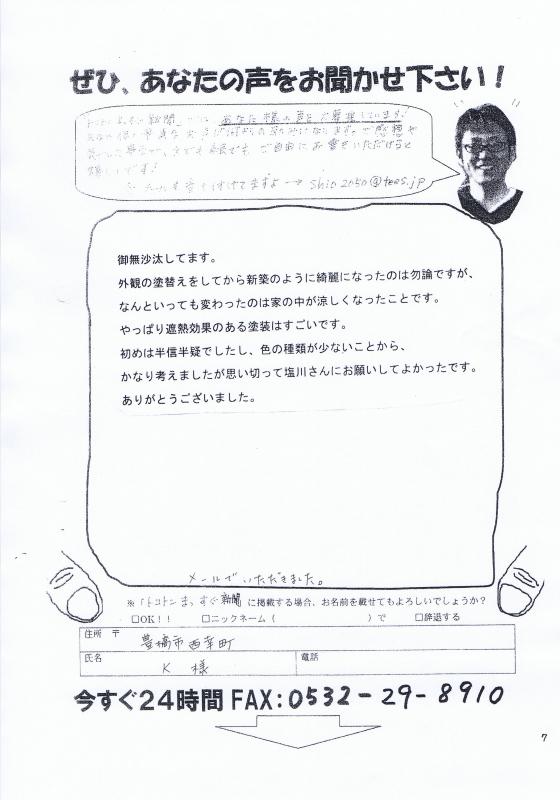 ぜひ、あなたの声をお聞かせ下さい!
あなた様の声を
ご自由にお書きいただけると
嬉しいです!
メールも受け付けてますよ→ shio2050@tees.jp
御無沙汰してます。
外観の塗替えをしてから新築のように綺麗になったのは勿論ですが、
なんといっても変わったのは家の中が涼しくなったことです。
やっぱり遮熱効果のある塗装はすごいです。
初めは半信半疑でしたし、色の種類が少ないことから、
かなり考えましたが思い切って塩川さんにお願いしてよかったです。
ありがとうございました。
メールでいただきました。
※「トコトンまっすぐ新聞」に掲載する場合、お名前を載せてもよろしいでしょうか?
□OK!! □ニックネーム( )で □辞退する
住所 〒 豊橋市西幸町
氏名 K 様 電話
今すぐ24時間 FAX:0532-29-8910
7